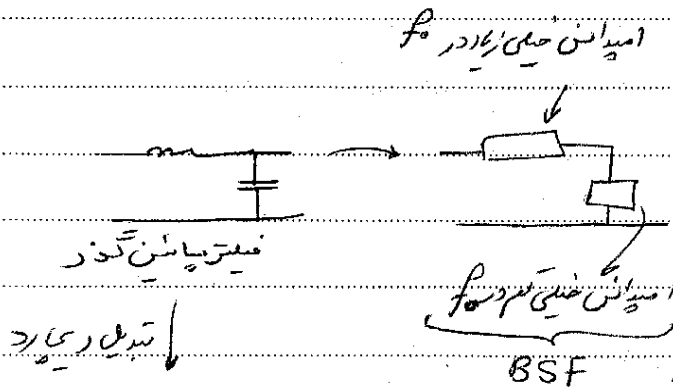 امپدانس خیلی زیاد در f₀
فیلتر پایین گذر
امپدانس خیلی کم در f₀
تبدیل ریچارد
BSF